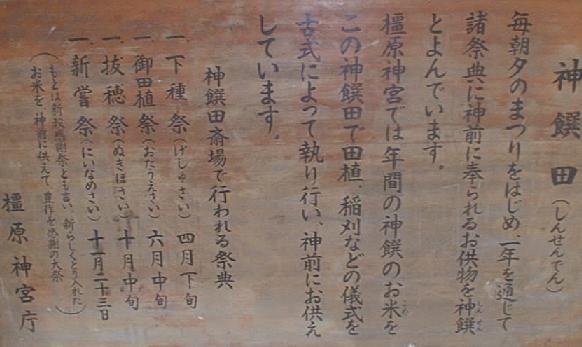 神饌田(しんせんでん)
毎朝夕のまつりをはじめ、一年を通じて
諸祭典に神前に奉られるお供物を神饌
とよんでいます。
橿原神宮では年間の神饌のお米を
この神饌田で田植、稲刈などの儀式を
古式によって執り行い、神前にお供え
しています。
神饌田斎場で行われる祭典
一 下種祭(げしゅさい) 四月下旬
一 御田植祭(おだうえさい) 六月中旬
一 抜穂祭(ぬきほさい) 十月中旬
一 新嘗祭(にいなめさい) 十一月二十三日
お米を神前に供えて、豊作を感謝の大祭
橿原神宮庁